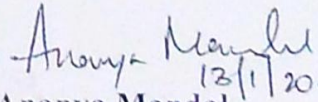 Ananya Mandal
13/1/20
Ananya Mandal